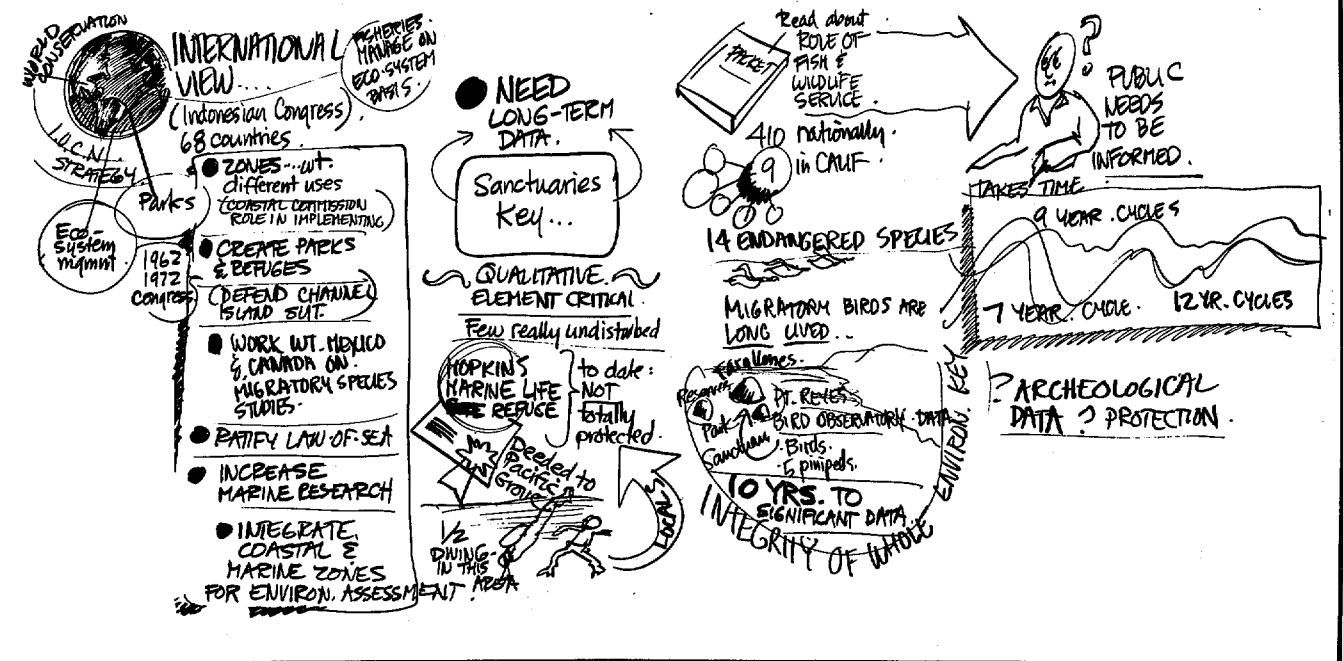 WORLD CONSERVATION
I.U.C.N.
STRATEGY
Parks
Eco-
system
mgmnt
1962
1972
Congress
INTERNATIONAL
VIEW....
(Indonesian Congress).
68 countries.
FISHERIES.
MANAGE ON
ECO-SYSTEM
BASIS.
ZONES---wt.
different uses
(COASTAL COMMISSION
ROLE IN IMPLEMENTING)
CREATE PARKS
& REFUGES
(DEFEND CHANNEL
ISLAND SUT.
WORK WT. MEXICO
& CANADA ON
MIGRATORY SPECIES
STUDIES.
RATIFY LAW-OF-SEA
INCREASE
MARINE RESEARCH
INTEGRATE
COASTAL &
MARINE ZONES
FOR ENVIRON. ASSESSMENT.
NEED
LONG-TERM
DATA.
Sanctuaries
Key...
QUALITATIVE
ELEMENT CRITICAL.
Few really undisturbed
HOPKINS
MARINE LIFE
REFUGE
to date:
NOT
totally
protected.
Deeded to
Pacific
Grove
1/2
DIVING-
IN THIS
AREA
LOCALS
PACKET
Read about
ROLE OF
FISH &
WILDLIFE
SERVICE.
410 nationally.
9 in CALIF.
14 ENDANGERED SPECIES
MIGRATORY BIRDS ARE
LONG LIVED...
Farallones.
Research
Park
Sanctuary
PT. REYES
BIRD OBSERVATORY-DATA
·Birds.
·5 pinipeds.
10 YRS. TO
SIGNIFICANT DATA
INTEGRITY OF WHOLE
ENVIRON. KEY
?
PUBLIC
NEEDS
TO BE
INFORMED.
TAKES TIME
9 YEAR CYCLES
7 YEAR. CYCLE.
12 YR. CYCLES
? ARCHEOLOGICAL
DATA ? PROTECTION.